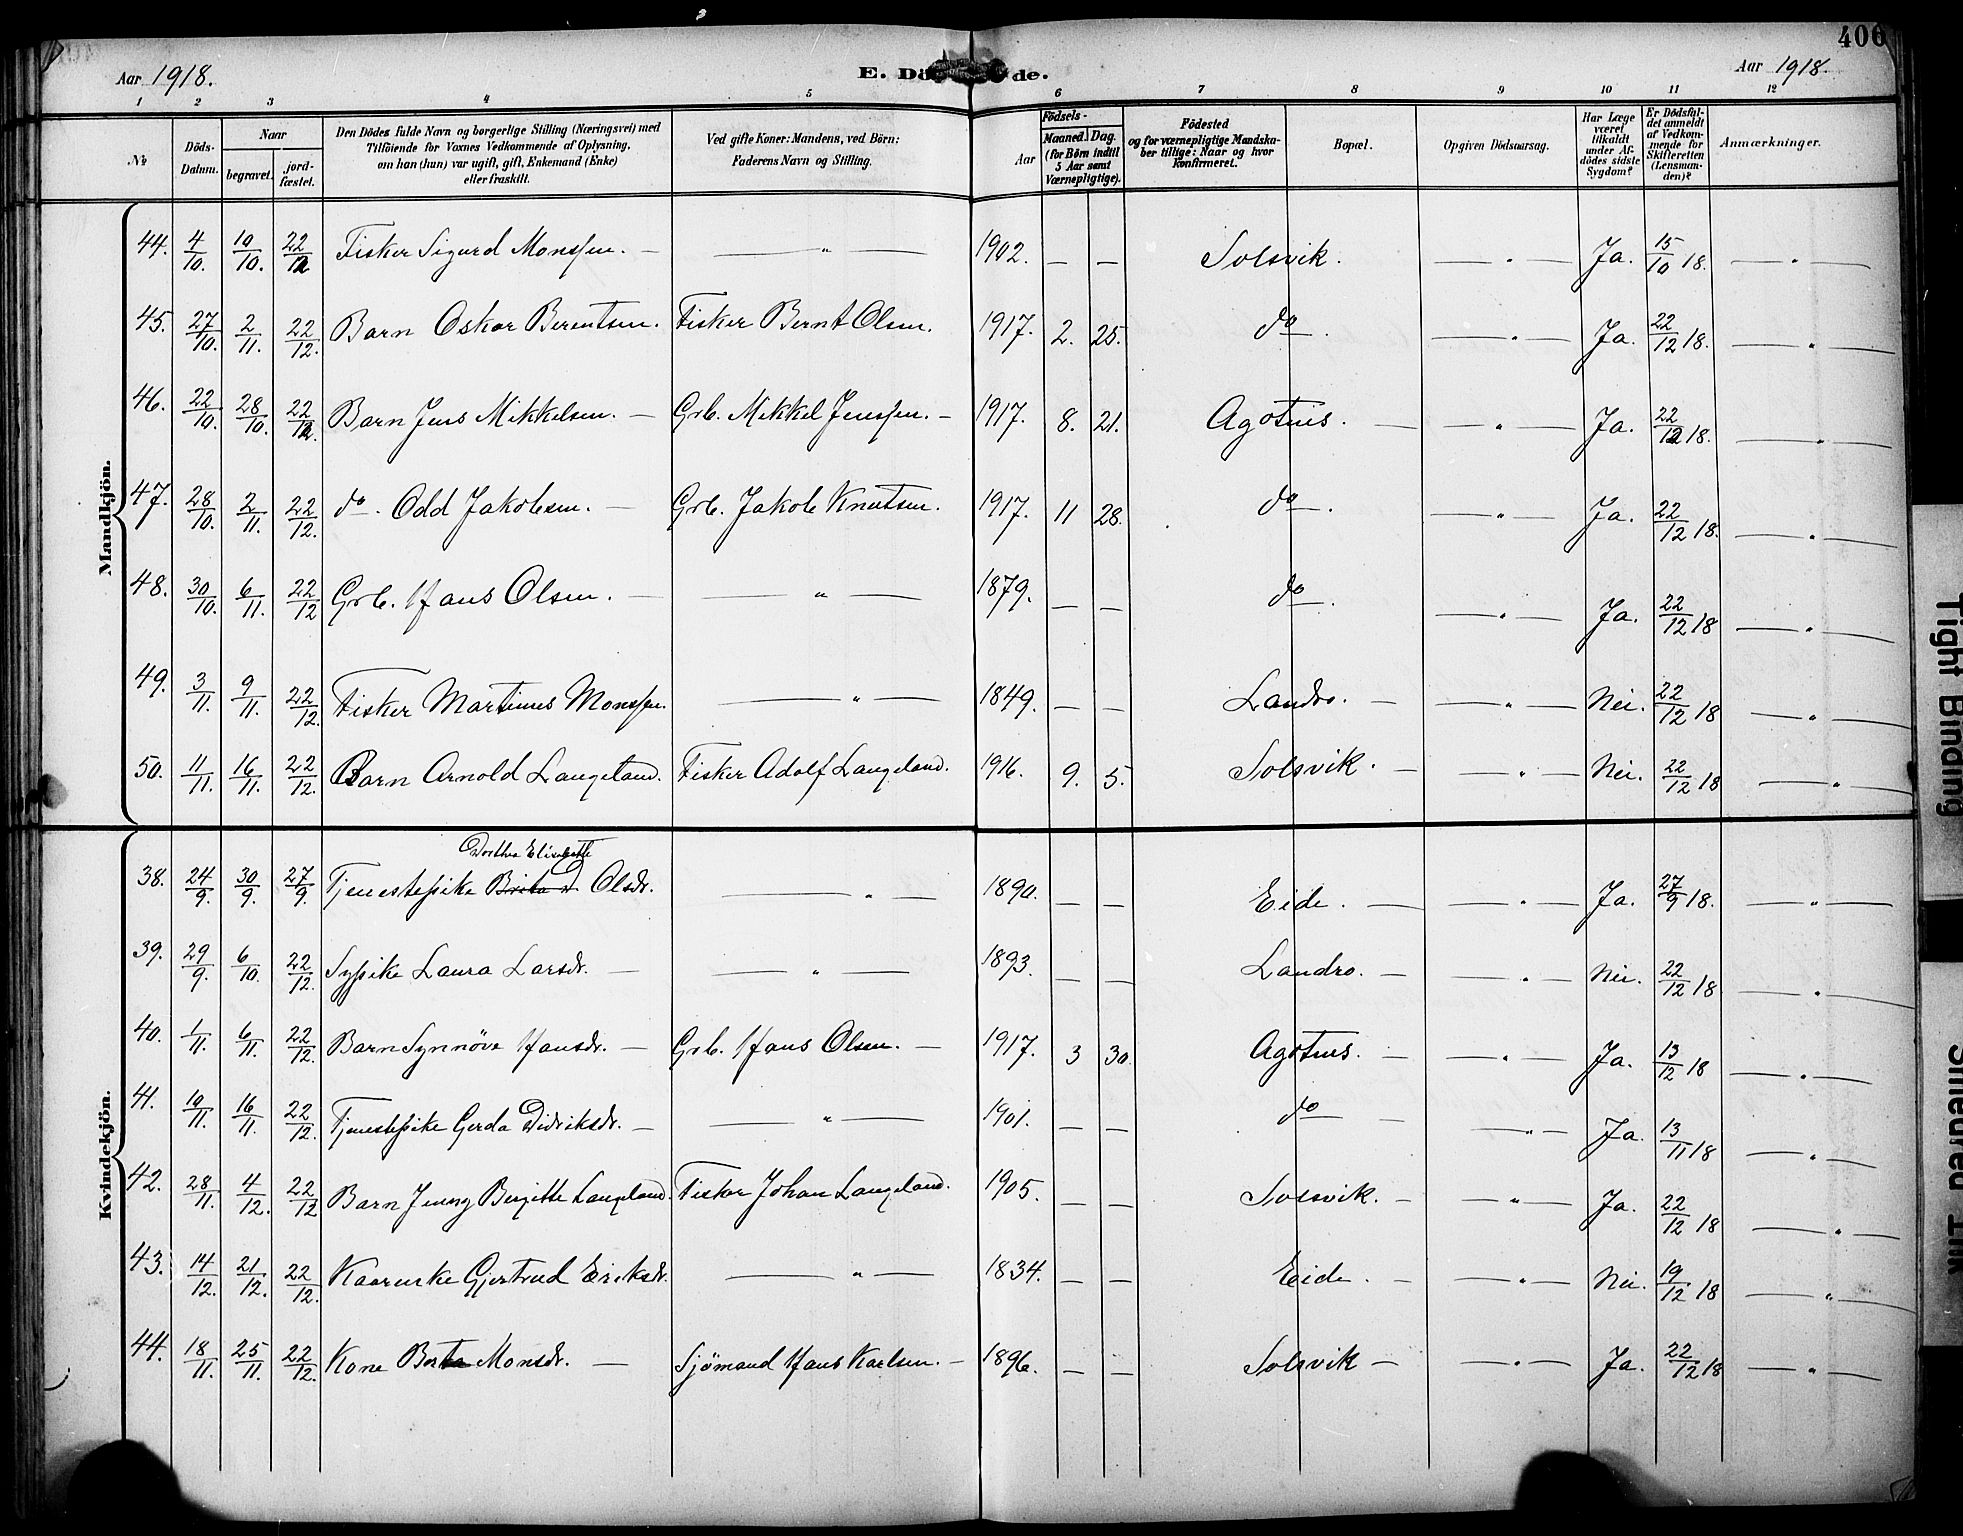 406
Aar 1918.
E. Dö de.
Aar 1918.
1 2 3 4 5 6 7 8 9 10 11 12
No
Döds-Datum.
Naar
begravet.
jord-fæstet.
Den Dödes fulde Navn og borgerlige Stilling (Næringsvei) med
Tilföiende for Voxnes Vedkommende af Oplysning,
om han (hun) var ugift, gift, Enkemand (Enke)
eller fraskilt.
Ved gifte Koner: Mandens, ved Börn:
Faderens Navn og Stilling.
Födsels-
Aar
Maaned. Dag.
(for Börn indtil
5 Aar samt
Værnepligtige).
Födested
og for værnepligtige Mandska-
ber tillige: Naar og hvor
konfirmeret.
Bopæl.
Opgiven Dödsaarsag.
Har Læge
været
tilkaldt
under Af-
dödes sidste
Sygdom?
Er Dödsfal-
det anmeldt
af Vedkom-
mende for
Skifteretten
(Lensman-
den)?
Anmærkninger.
Mandkjön.
44. 4/10. 10/10. 22/12 Fisker Sigurd Monssen. — — " — 1902. — — Solsvik. — " — Ja. 15/10 18. — " —
45. 27/10. 2/11. 22/12. Barn Oskar Berentsen. Fisker Bernt Olsen. 1917. 2. 25. do. — " — Ja. 22/12 18. — " —
46. 22/10. 28/10. 22/12. Barn Jens Mikkelsen. — Grb. Mikkel Jenssen. — 1917. 8. 21. Agotnes. — — " — Ja. 22/12 18. — " —
47. 28/10. 2/11. 22/12. do. Odd Jakobsen. — Grb. Jakob Knutsen. 1917. 11 28. do. — " — Ja. 22/12 18. — " —
48. 30/10. 6/11. 22/12 Grb. Hans Olsen. — — " — 1879. — — do. — " — Ja. 22/12 18 — " —
49. 3/11. 9/11. 22/12. Fisker Martinus Monssen. — " — 1849. — — Landro. — — " — Nei. 22/12 18 — " —
50. 11/11. 16/11. 22/12. Barn Arnold Langeland. Fisker Adolf Langeland. 1916. 9. 5. Solsvik. — — " — Nei. 22/12 18 — " —
Kvindekjön.
Dorthea Elisabeth
38. 24/9. 30/9. 27/9. Tjenestepike Brita D Olsdr. — " — 1890. — — Eide. — — " — Ja. 27/9 18. — " —
39. 29/9. 6/10. 22/12. Sypike Laura Larsdr. — — " — 1893. — — Landro. — — " — Nei. 22/12 18 — " —
40. 1/11. 6/11. 22/12. Barn Synnöve Hansdr. — Grb. Hans Olsen. — 1917. 3 30. Agotnes. — — " — Ja. 13/12 18 — " —
41. 10/11. 16/11. 22/12. Tjenestepike Gerda Didriksdr. — — " — 1901. — — do — — " — Ja. 13/11 18 — " —
42. 28/11. 4/12. 22/12 Barn Jenny Bergitte Langeland. Fisker Johan Langeland. 1905. — — Solsvik. — — " — Ja. 22/12 18 — " —
43. 14/12. 21/12. 22/12. Kaarenke Gjertrud Eriksdr. — " — 1834. — — Eide. — — " — Nei. 19/12 18 — " —
44. 18/11. 25/11. 22/12. Kone Berta Monsdr. — Sjömand Hans Karlsen. — 1896. — — Solsvik — — " — Ja. 22/12 18 — " —
Tight Binding